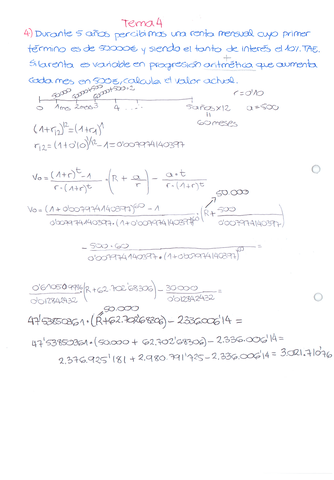 Tema 4
4) Durante 5 años percibimos una renta mensual cuyo primer
término es de 50.000€ y siendo el tanto de interés el 10% TAE.
Si la renta es variable en progresión aritmética que aumenta
cada mes en 500€, calcula el valor actual.
50000 50000+500 50000+500·2
r=0'10
0 1mes 2meses 3 4 ... 5años×12 a=500
60meses
(1+r12)^12=(1+r1)^1
r12=(1+0'10)^1/12-1=0'00797414039
V0= (1+r)^t-1 / r·(1+r)^t · (R + a/r) - a·t / r·(1+r)^t
50.000
V0= (1+0'00797414039)^60-1 / 0'00797414039·(1+0'00797414039)^60 (R+ 500 / 0'00797414039)
- 500·60 / 0'00797414039·(1+0'00797414039)^60 =
(R+62.702'68306) - 30000 / 0'012842432 =
50.000
47'53850361·(R+62.702'68306)-2.336.006'14=
47'53850361·(50.000+62.702'68306)-2.336.006'14=
2.376.925'181+2.980.791'725-2.336.006'14=3.021.710'76